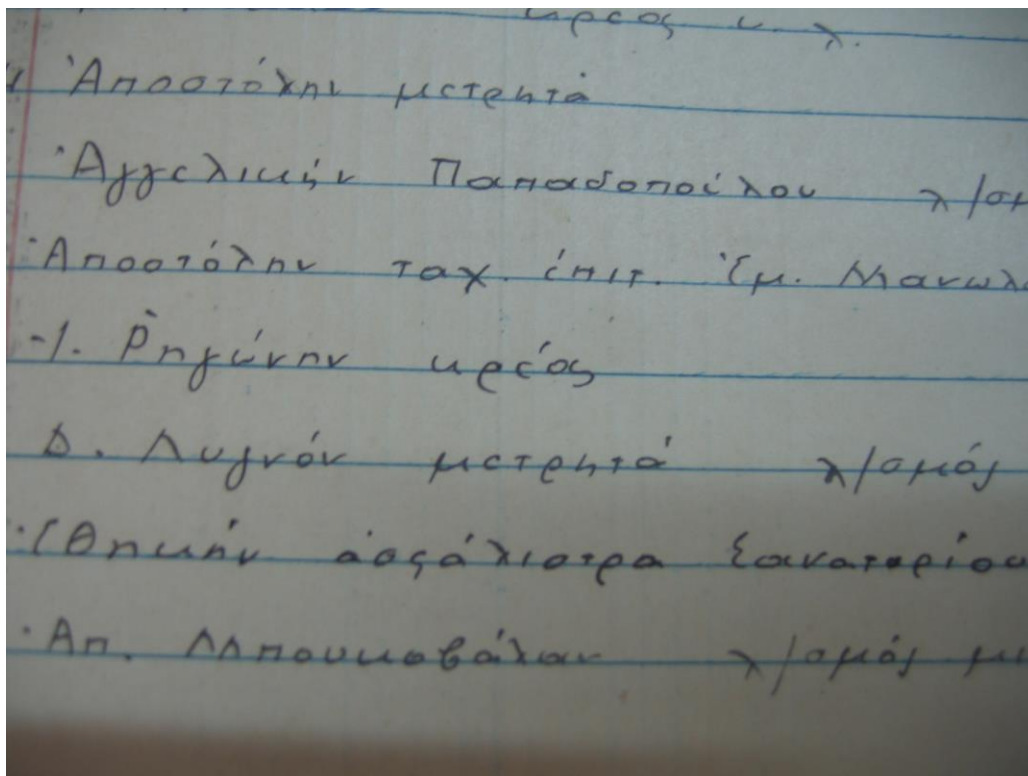 κρέος κ. λ.
Ἀποστόλην μετρητά
Ἀγγελικήν Παπαδοπούλου λ/σμ
Ἀποστόλην ταχ. ἐπιτ. Ἐμ. Μανωλ
-1. Ῥηγίνην κρέος
Δ. Λυγνόν μετρητά λ/σμός
Ἐθηκήν ἀσφάλιστρα Σανατορίου
Ἀπ. Μπουκοβάλαν λ/σμός